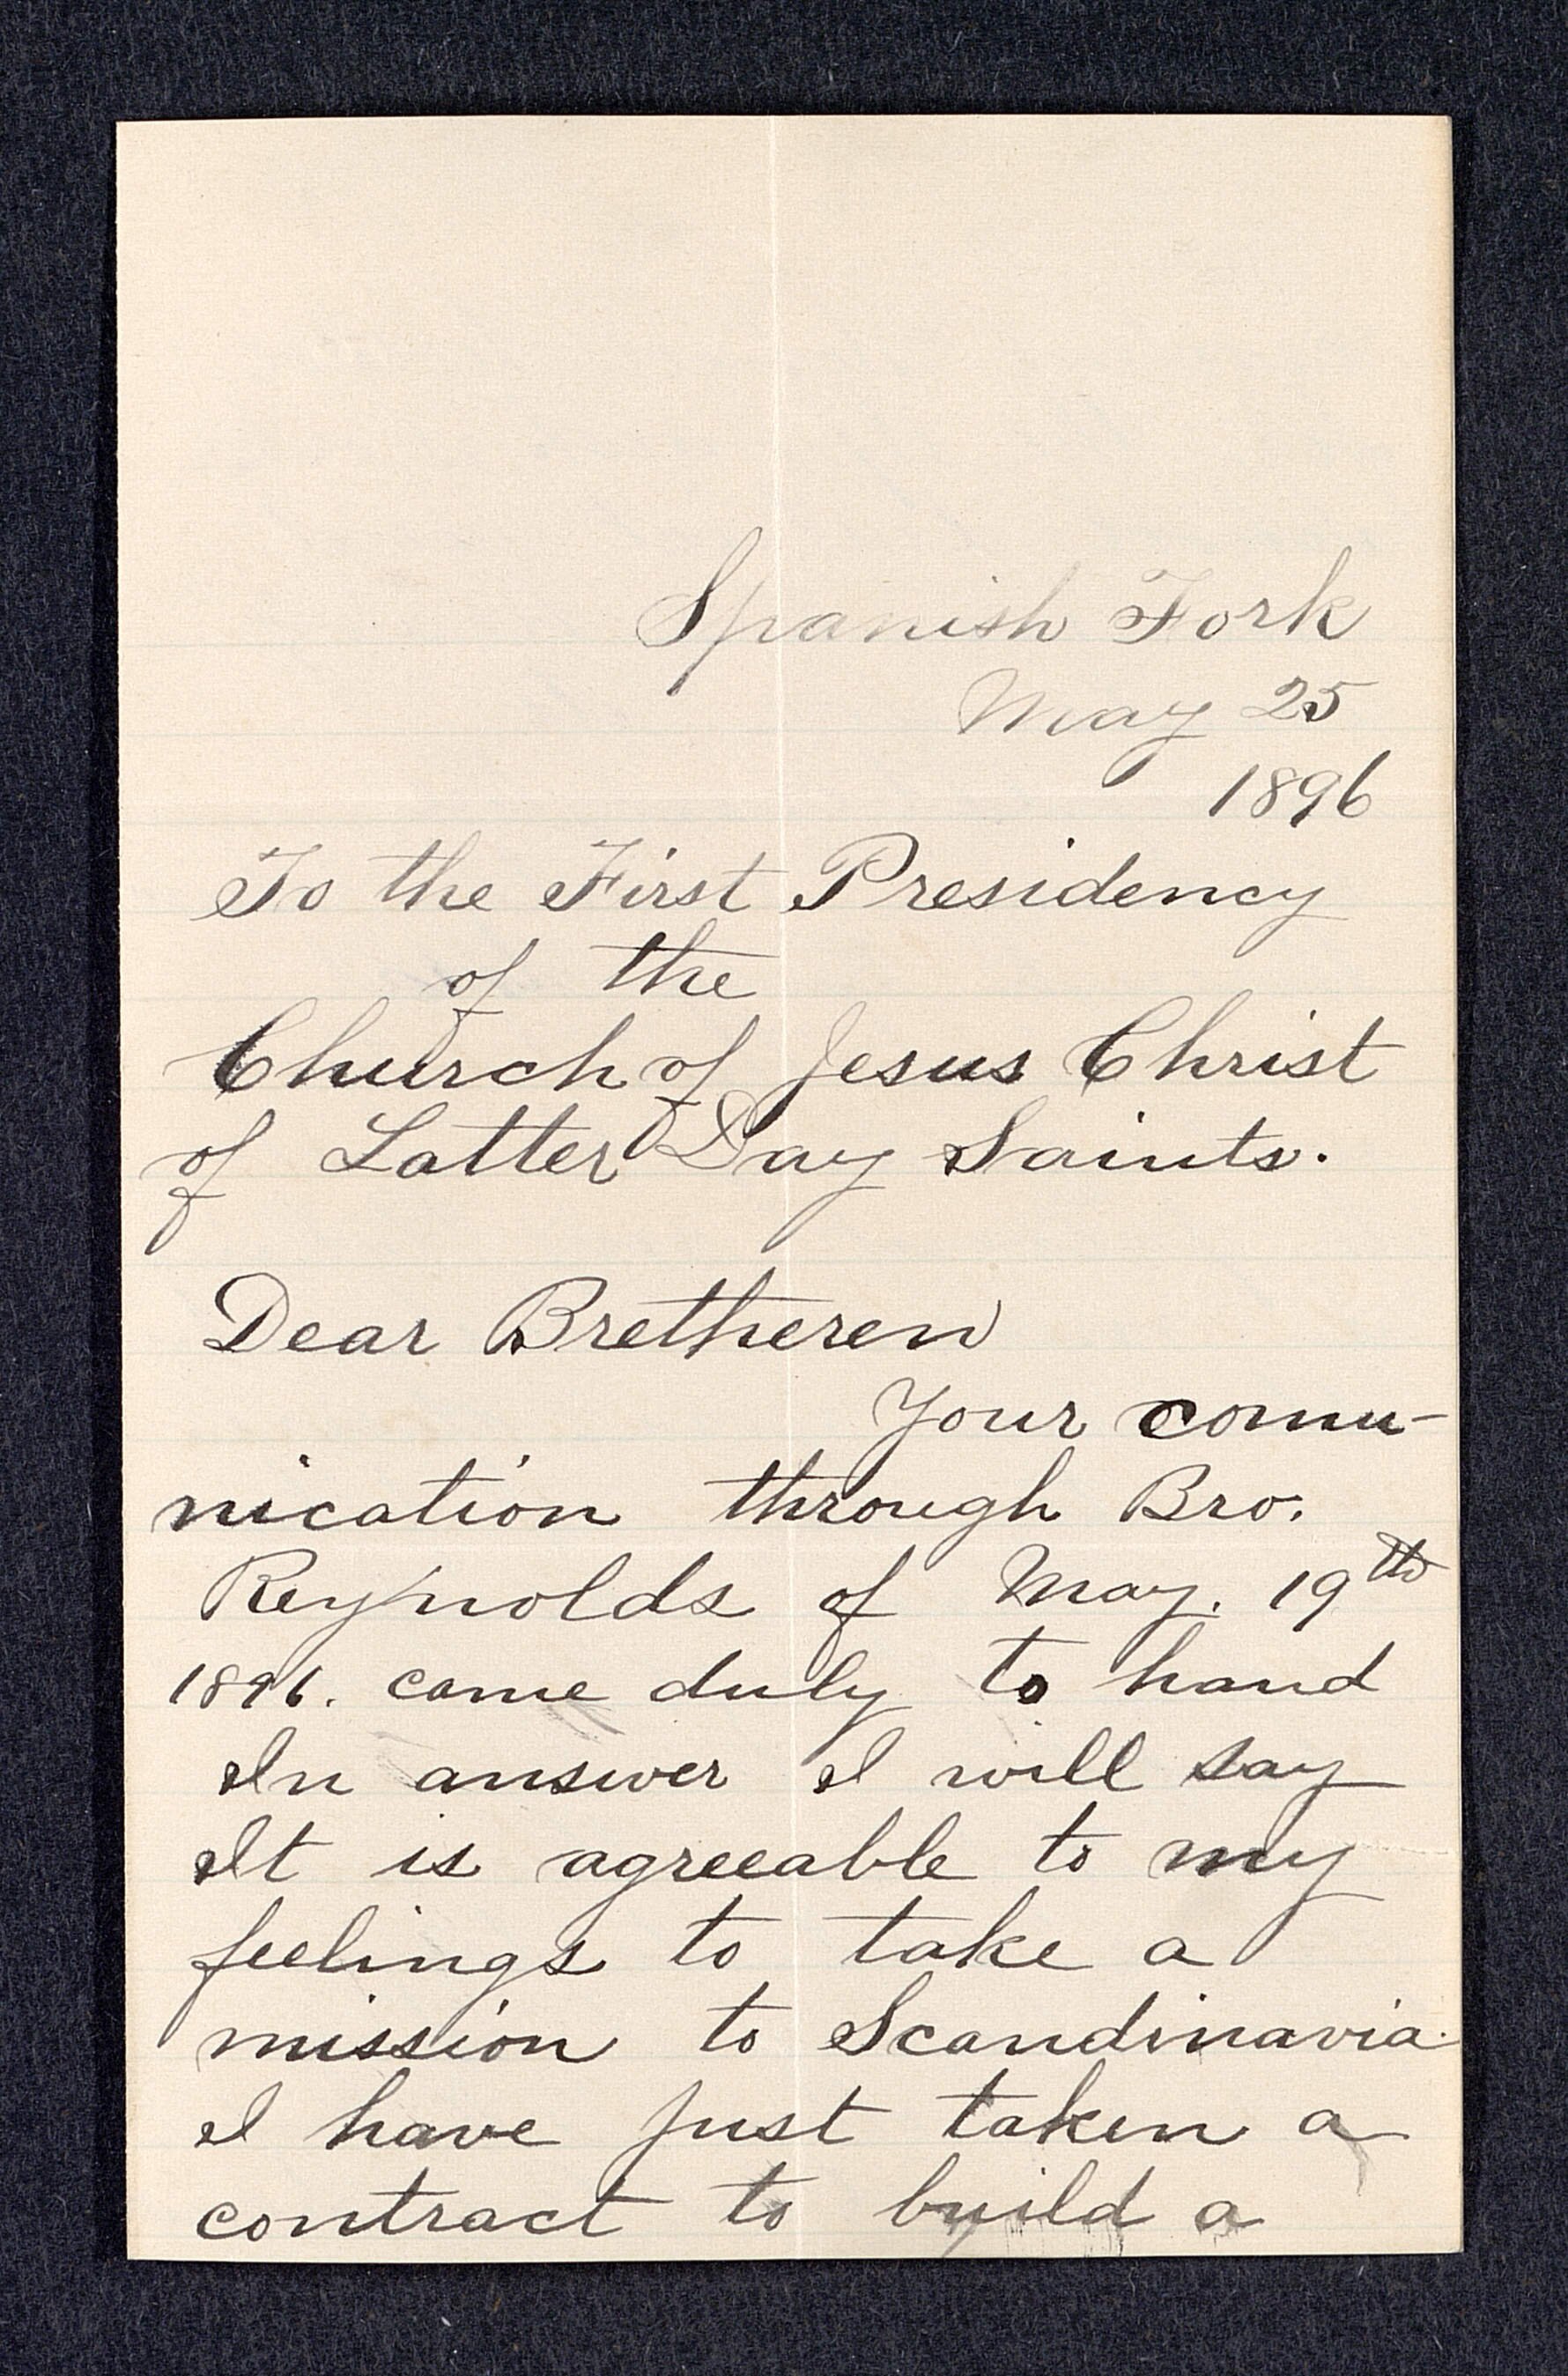 Spanish Fork
May 25
1896
To the First Presidency
of the
Church of Jesus Christ
of Latter Day Saints.
Dear Bretheren
Your comu-
nication through Bro.
Reynolds of May. 19th
1896. came duly to hand
In answer I will say
It is agreeable to my
feelings to take a
mission to Scandinavia.
I have just taken a
contract to build a